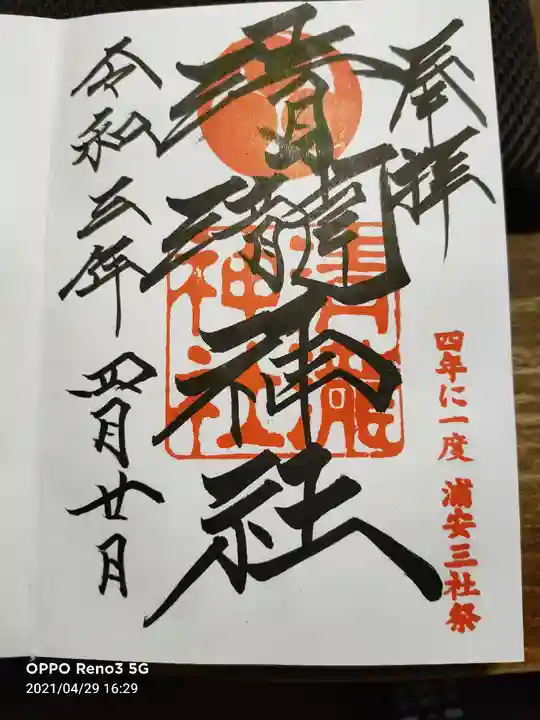 奉拝
清瀧神社
令和三年四月廿日
清瀧
神社
四年に一度 浦安三社祭
OPPO Reno3 5G
2021/04/29 16:29